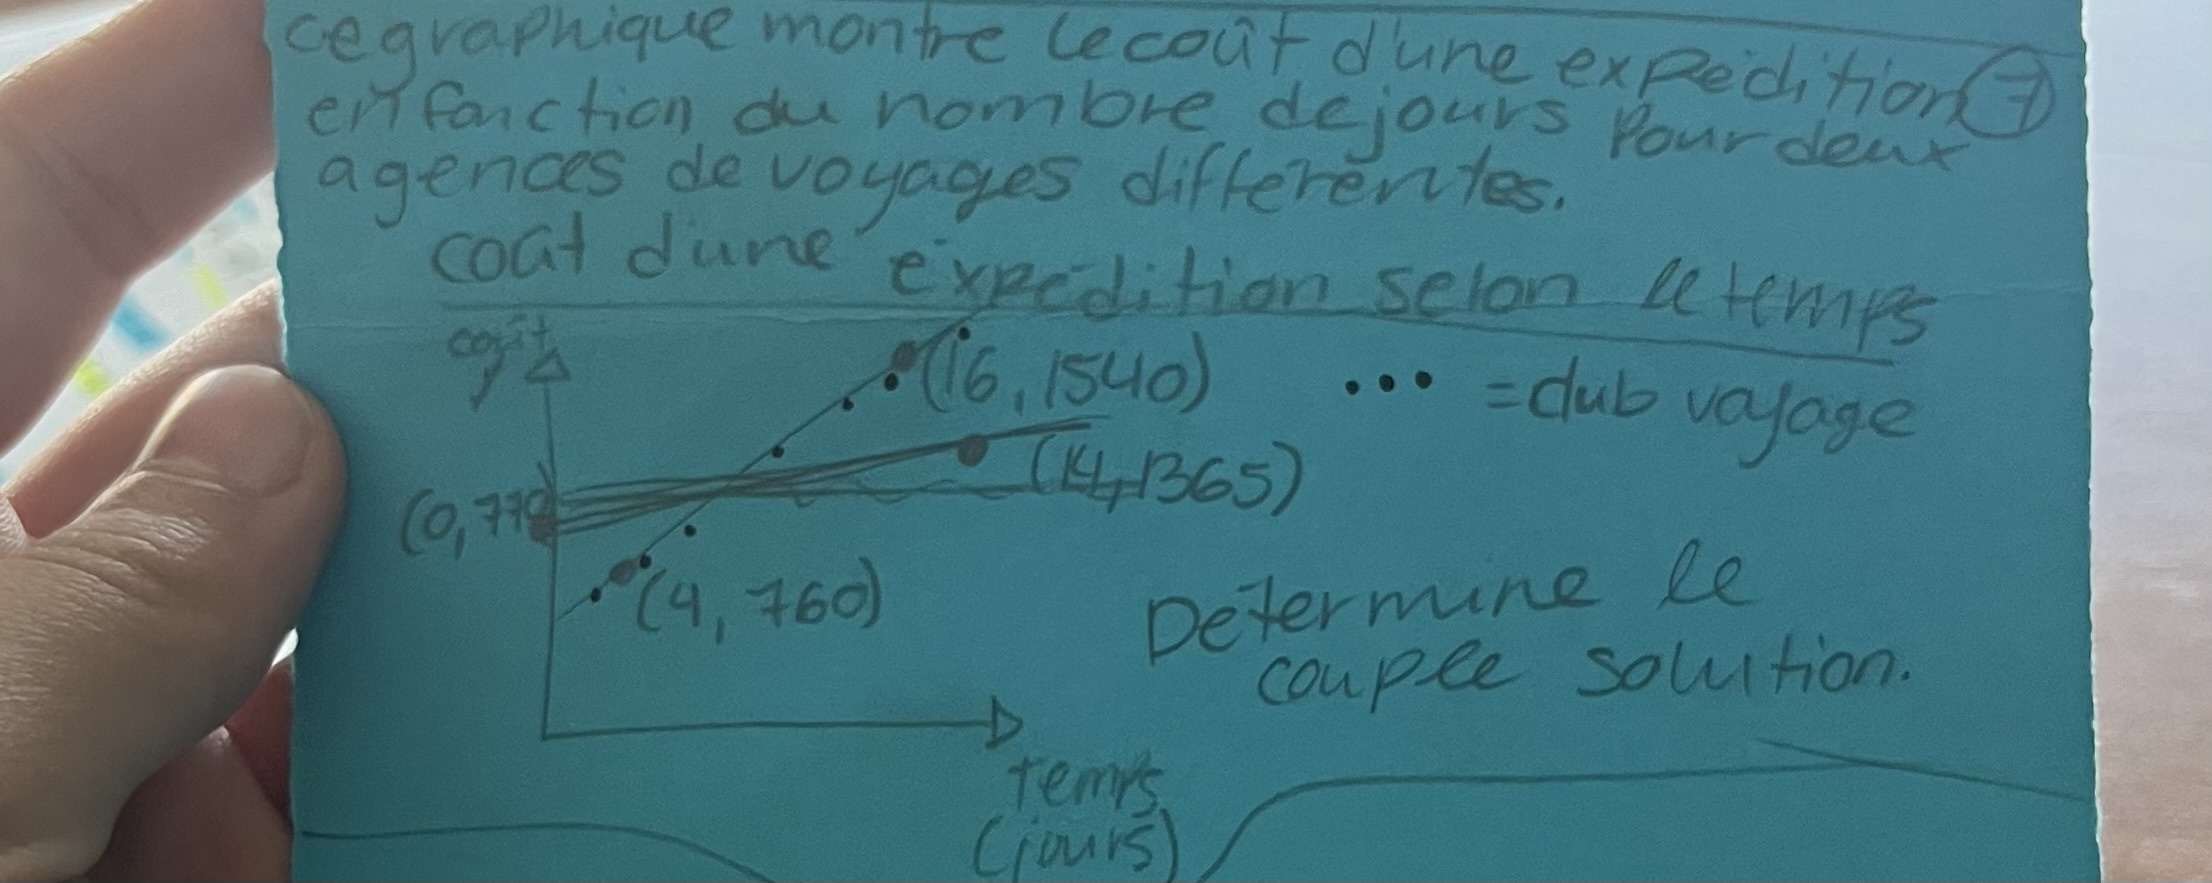 ce graphique montre le coût d'une expédition 7
en fonction du nombre de jours pour deux
agences de voyages différentes.
coût d'une expédition selon le temps
coût
y
(16, 1540)
... = club voyage
(14, 1365)
(0, 770)
(4, 760)
Détermine le
couple solution.
temps
(jours)